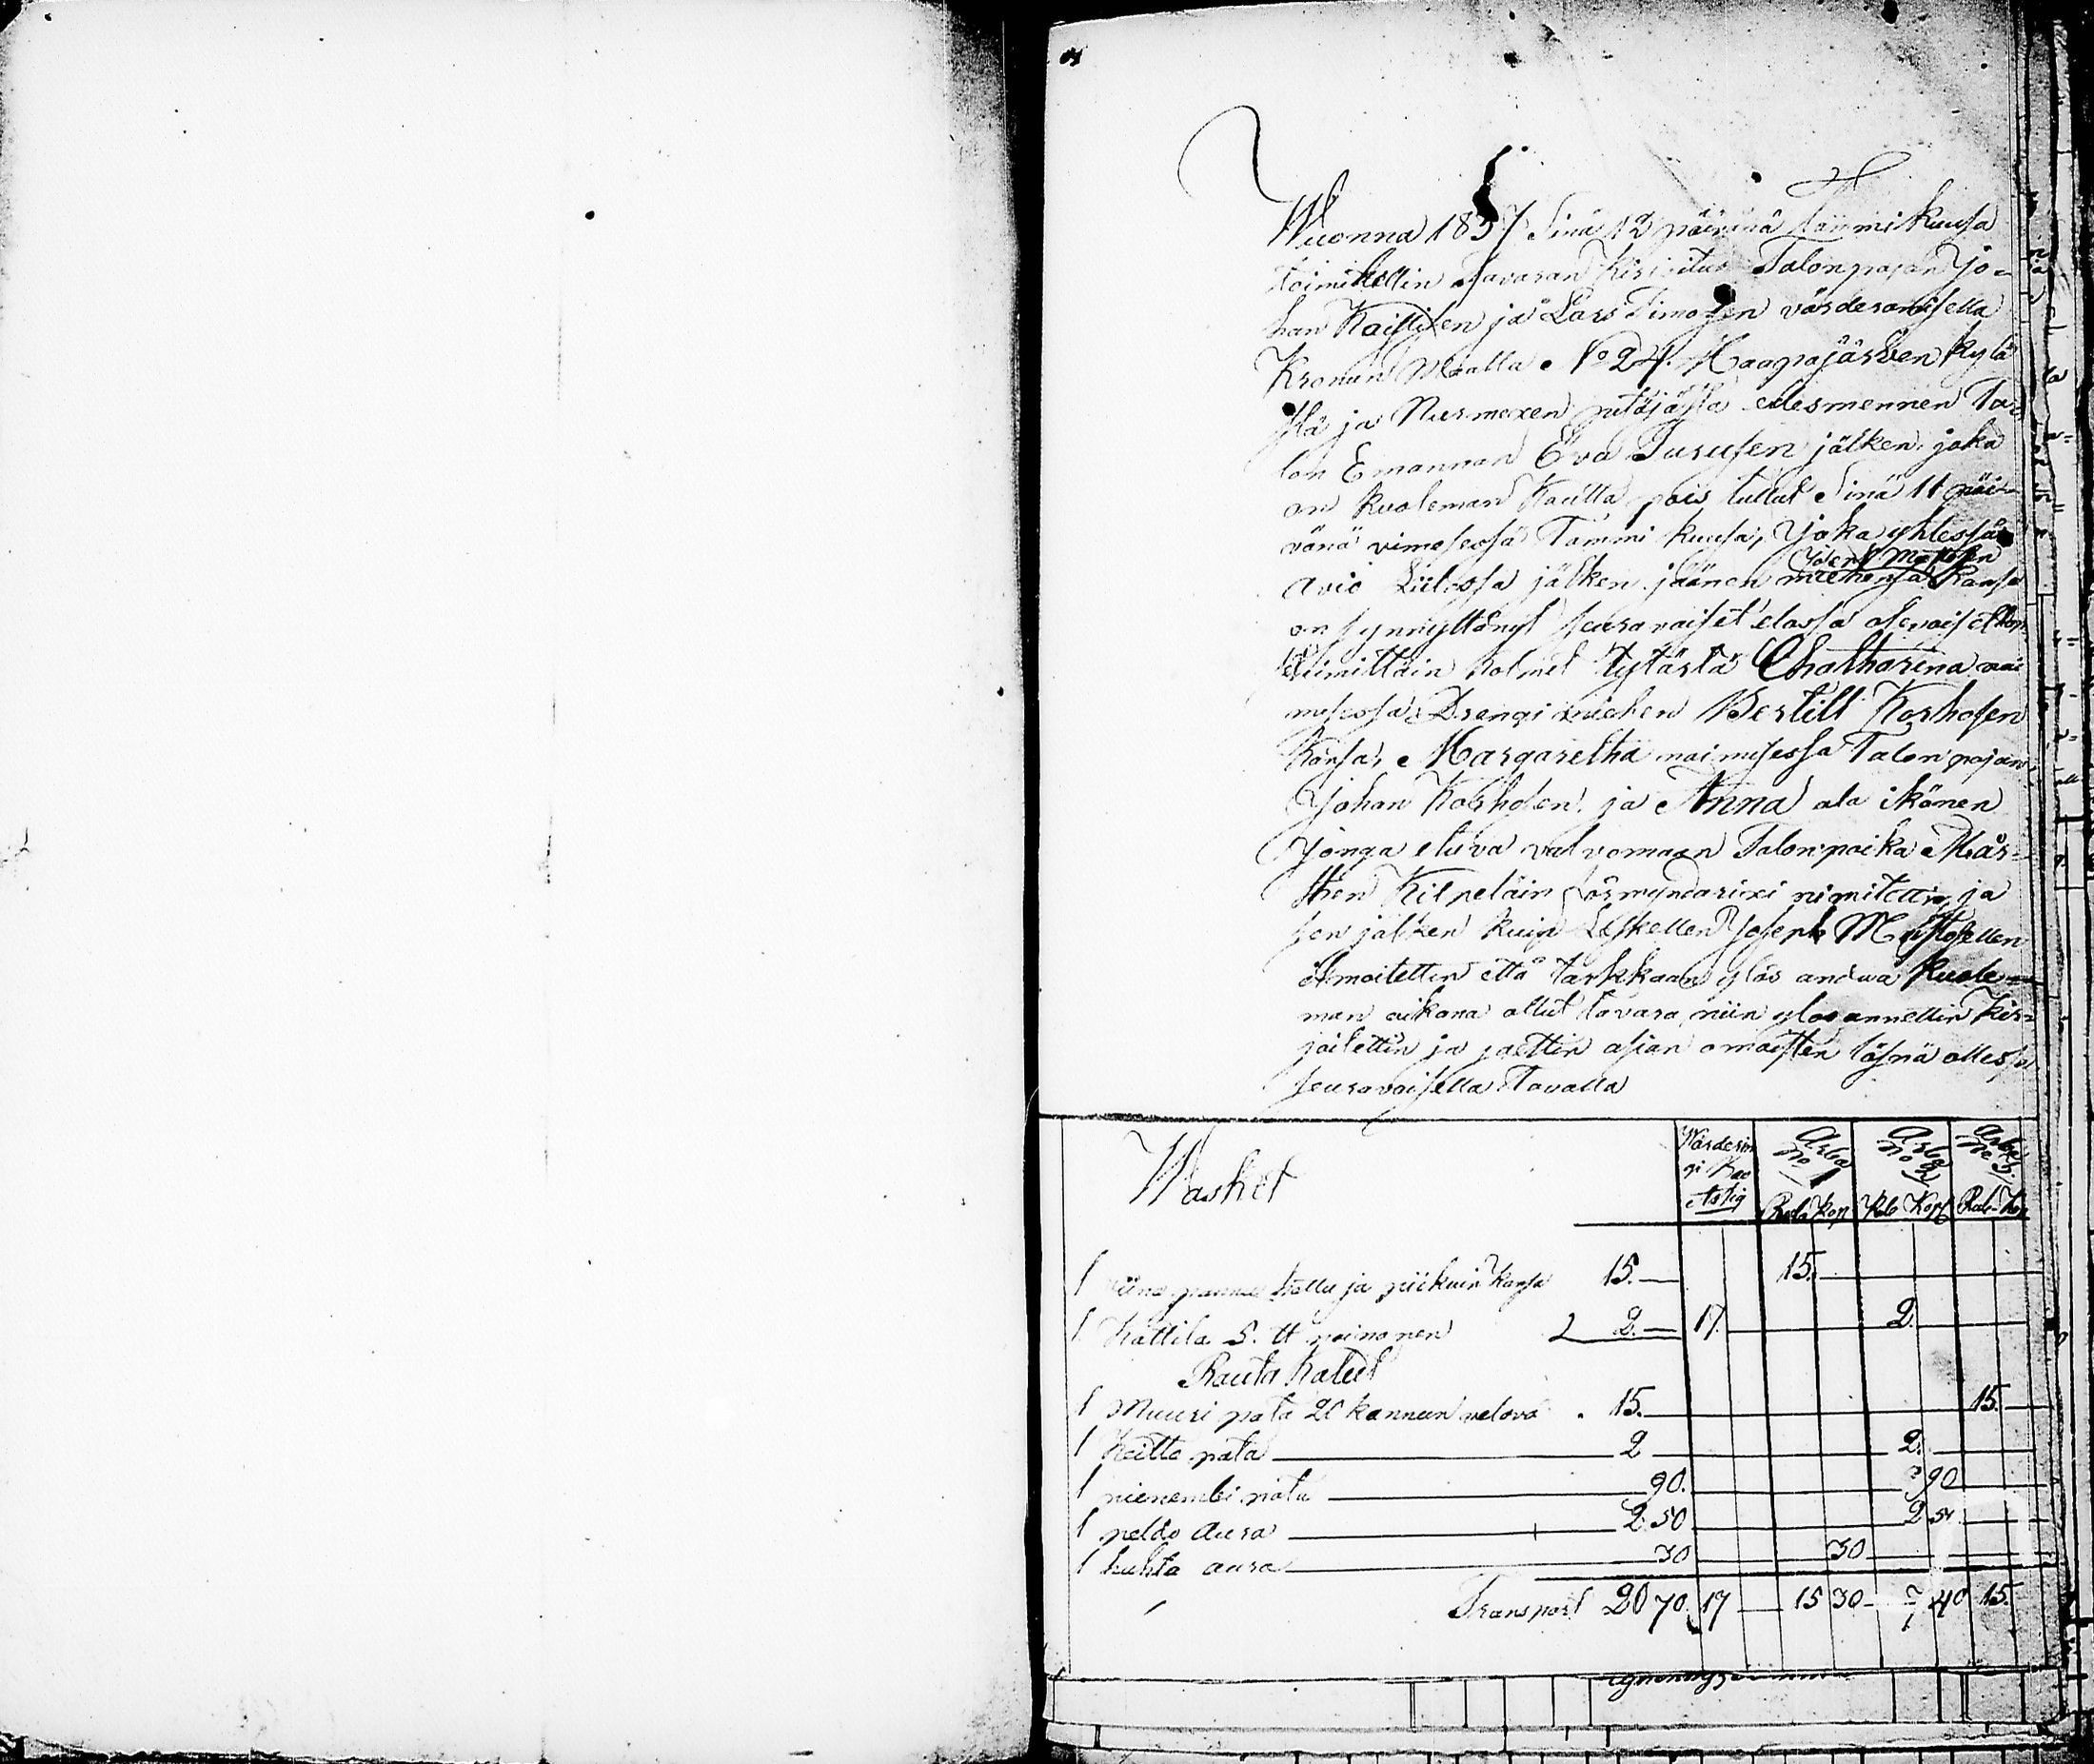 Wuonna 1837 Sinä 12 päivänä Tammi kuusa
toimitettin Tavaran Kirjoitus Talonpajan Jo=
han Kaistisen ja Lars Timosen värderamisella
Kronun Maalla No 24. Haapajärven kylä
stä ja Nurmexen pitäjästä edesmennen Ta=
lon Emannan Eva Turusen jälken, joka
on kuoleman kautta pois tullut Sinä 11 päi=
vänä vimesessä Tammi kuusa, Joka yhtessä
Josep Mustosen
Avio Liitossa jälken jäänen miehensä Kansa
on synnyttänyt seuravaiset elossa olevaiset
Nimittäin kolmet tytärtä Chatharina nai
musessa Drengi miehen Bertill Korhosen
Kansa, Margaretha naimusessa Talon pojan
Johan Korhosen, ja Anna ala ikänen
Jonga etuva valvomaan Talonpoika Mår=
then Kilpeläin Förmyndarixi nimitettin, ja
sen jälken kuin Leskellen Joseph Mustosellen
ilmoitettin että tarkkaan ylös andaa kuole=
man aikana ollut tavara, niin ylös annettin Kir=
joitettin ja jaettin asian omaisten läsnä ollessa
seuravaisella Tavalla
Wasket
Wärderin
gi
Arba No 1 Arba No 2 Arba No 3.
Rubl Kop Rub Kop Rub Kop
1 Viina panna hattu ja piikuin Kansa 15.— 15.
1 Kattila 5. ℔ painonen 2.— 17. 2.
Rauta Kalut
1 Muuri pata 20 kannun vetävä 15. 15.
1 Keitto pata 2 2.
1 pienembi pata 90. 2 90
1 peldo Aura 2 50 2 50
1 huhta aura 30 30
Transport 20 70 17 — 15 30 — 7 40 15.